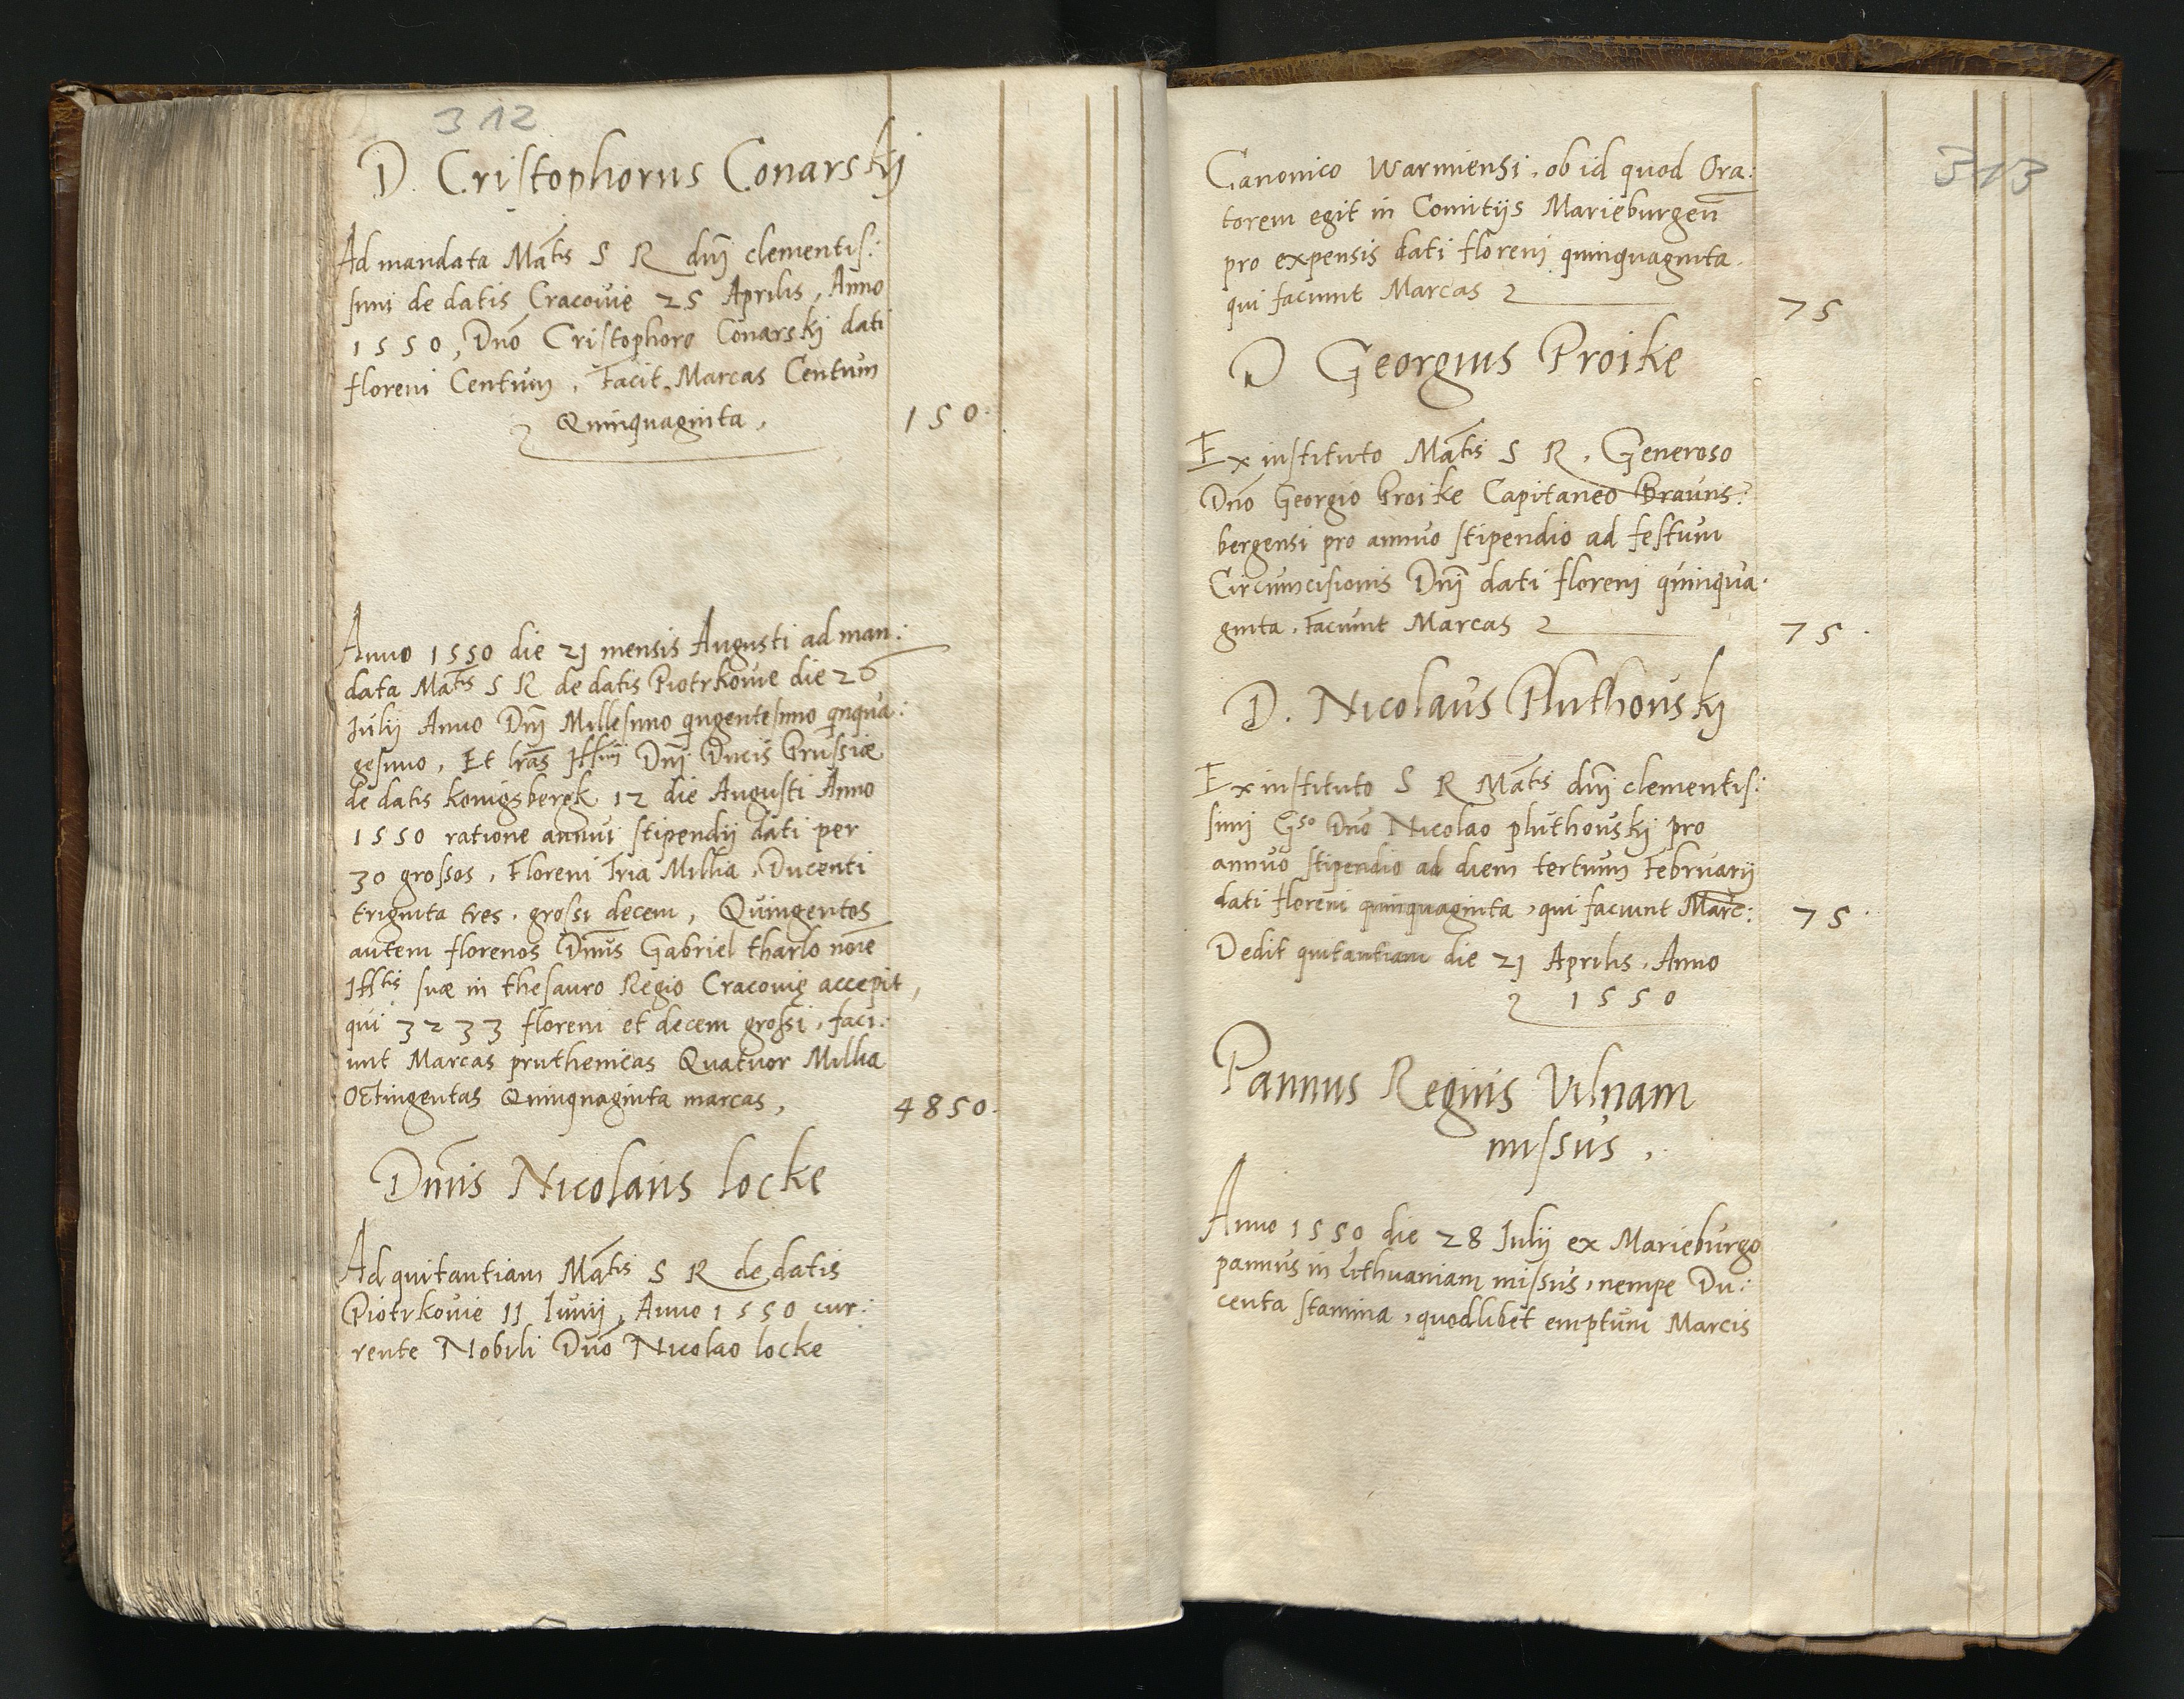 312
D. Cristophorus Conarskij
Ad mandata Ma̅tis S R dn̅j clementis:
simi de datis Cracovie 25 Aprilis, Anno
1550, Dno̅ Cristophoro Conarskj dati
floreni Centum, Facit Marcas Centum
Quinquaginta,
150.
Anno 1550 die 21 mensis Augusti ad man:
data Ma̅tis S R de datis Piotrkovie die 26
Julij Anno Dn̅j Millesimo qingentesimo qnqua:
gesimo, Et lr̅as Ill̅mi Dn̅j Ducis Prussiæ
de datis konigsbergk 12 die Augusti Anno
1550 ratione annui stipendij dati per
30 grossos, Floreni Tria Millia, Ducenti
triginta tres, grossi decem, Quingentos
autem florenos Dn̅us Gabriel tharlo no̅ie
Ill̅tis suæ in thesauro Regio Cracovię accepit,
qui 3233 floreni et decem grossi, faci:
unt Marcas pruthenicas Quatuor Millia
Octingentas Quinquaginta marcas,
4850.
Dn̅us Nicolaus locke
Ad quitantiam Ma̅tis S R de datis
Piotrkovie 11 Junij, Anno 1550 cur:
rente Nobili Dno̅ Nicolao locke
313
Canonico Warmiensi, ob id quod Ora:
torem egit in Comitijs Marieburgen̅
pro expensis dati floreni quinquaginta.
qui faciunt Marcas
75
D Georgius Proike
Ex instituto Ma̅tis S R, Generoso
Dno̅ Georgio Proike Capitaneo Brauns:
bergensi pro annuo stipendio ad festum
Circumcisionis Dn̅j dati florenj quinqua:
ginta, Faciunt Marcas
75.
D. Nicolaus Pluthouskj
Ex instituto S R Ma̅tis dn̅j clementis:
simj Gso Dno̅ Nicolao pluthouskj pro
annuo stipendio ad diem tertium Februarij
dati floreni quinquaginta, qui faciunt Marc:
75.
Dedit quitantiam die 21 Aprilis, Anno
1550
Pannus Regius Vilnam
missus,
Anno 1550 die 28 Julij ex Marieburgo
pannus in Lithuaniam missus, nempe Du:
centa stamina, quodlibet emptum Marcis